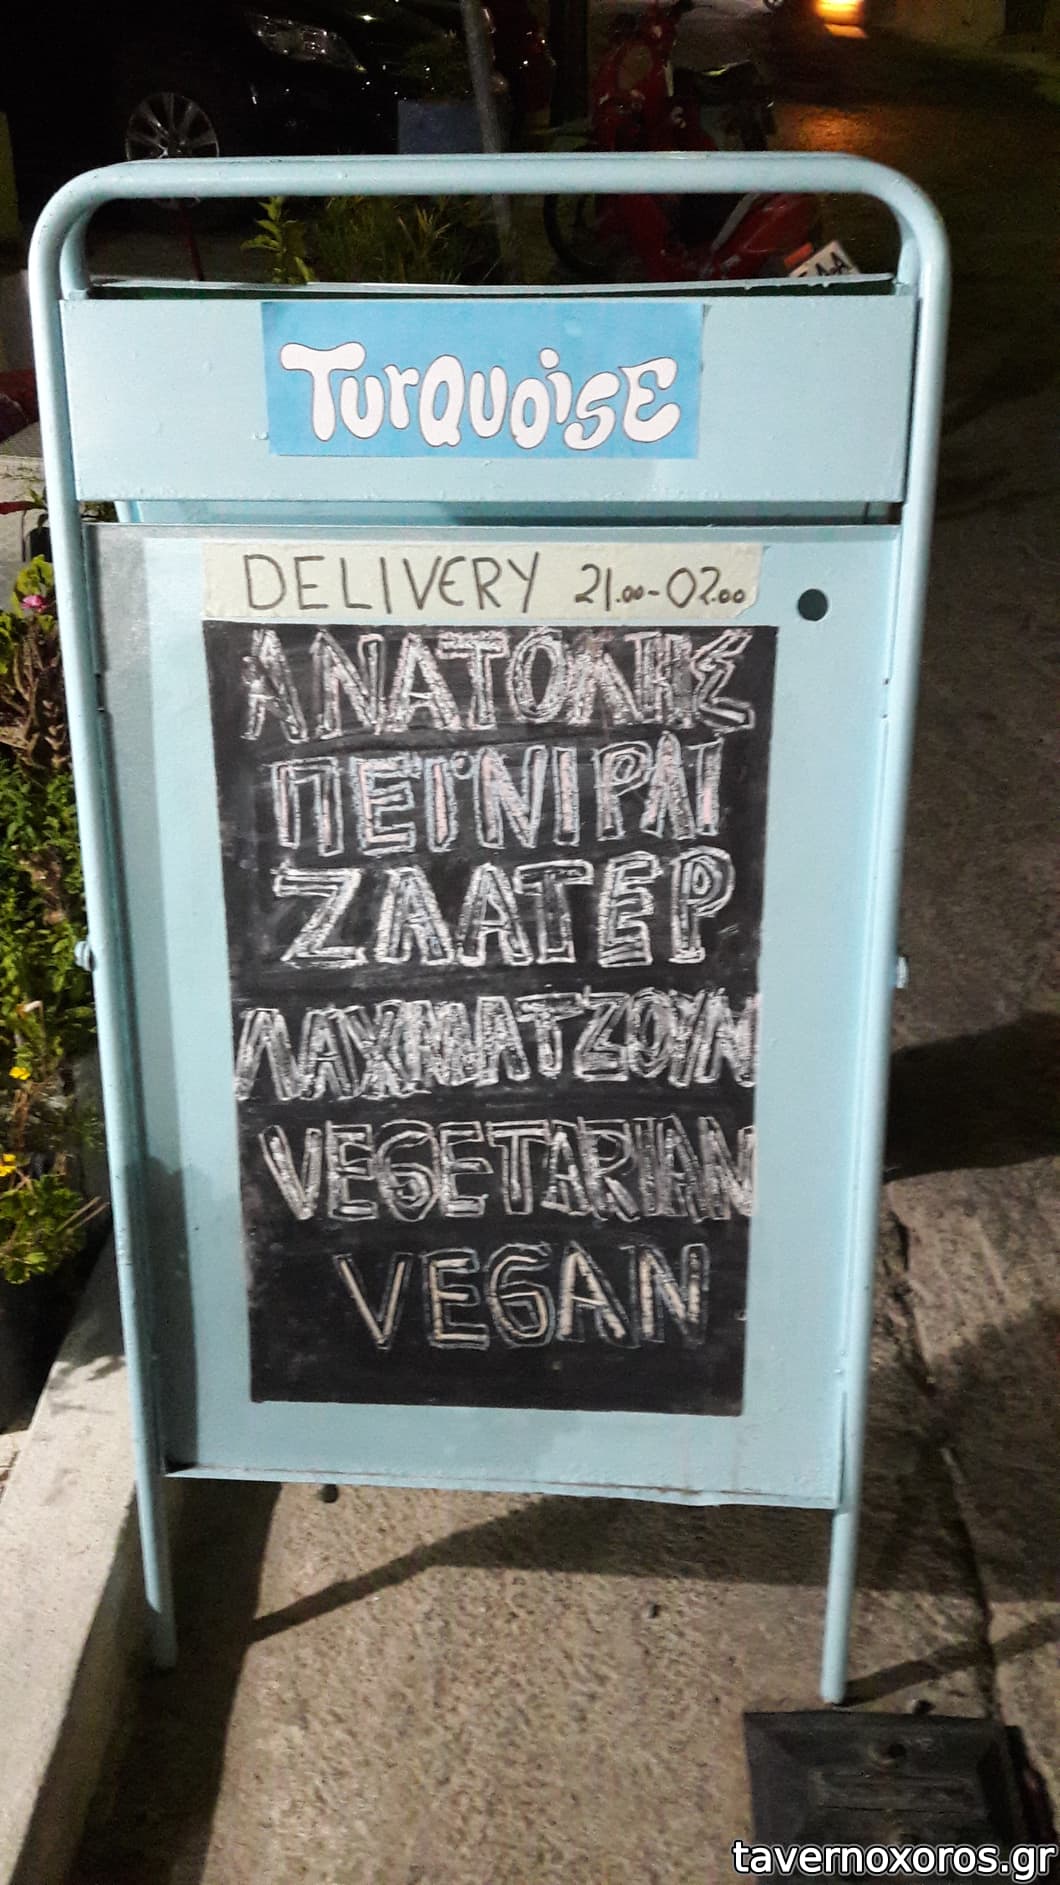 Turquoise
DELIVERY 21.00-02.00
ΑΝΑΤΟΛΗΣ
ΠΕΪΝΙΡΛΙ
ΖΑΑΤΕΡ
ΛΑΧΜΑΤΖΟΥΝ
VEGETARIAN
VEGAN
tavernoxoros.gr